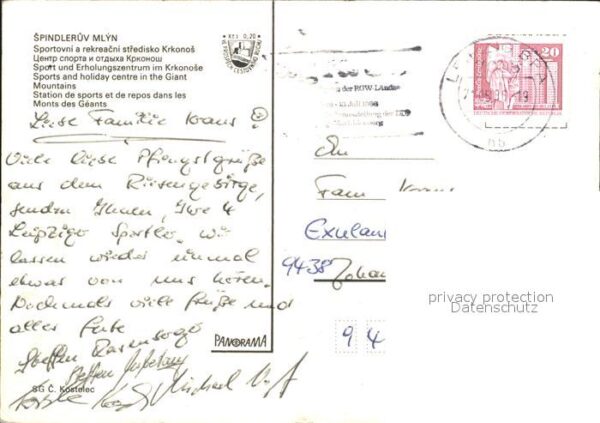 ŠPINDLERŮV MLÝN
Sportovní a rekreační středisko Krkonoš
Центр спорта и отдыха Крконош
Sport und Erholungszentrum im Krkonoše
Sports and holiday centre in the Giant
Mountains
Station de sports et de repos dans les
Monts des Géants
Kčs 0,20
Liebe Familie Kraus!
Viele liebe Pfingstgrüße
aus dem Riesengebirge,
senden Ihnen, Ihre 4
Leipziger Sportler. Wir
lassen wieder einmal
etwas von uns hören.
Nochmals viele Grüße und
alles Gute
Steffen
Michael
SG Č. Kostelec
PANORAMA
der RGW-Länder
Juli
20
An
Fam. Kraus
9438 Johan
9 4
privacy protection
Datenschutz